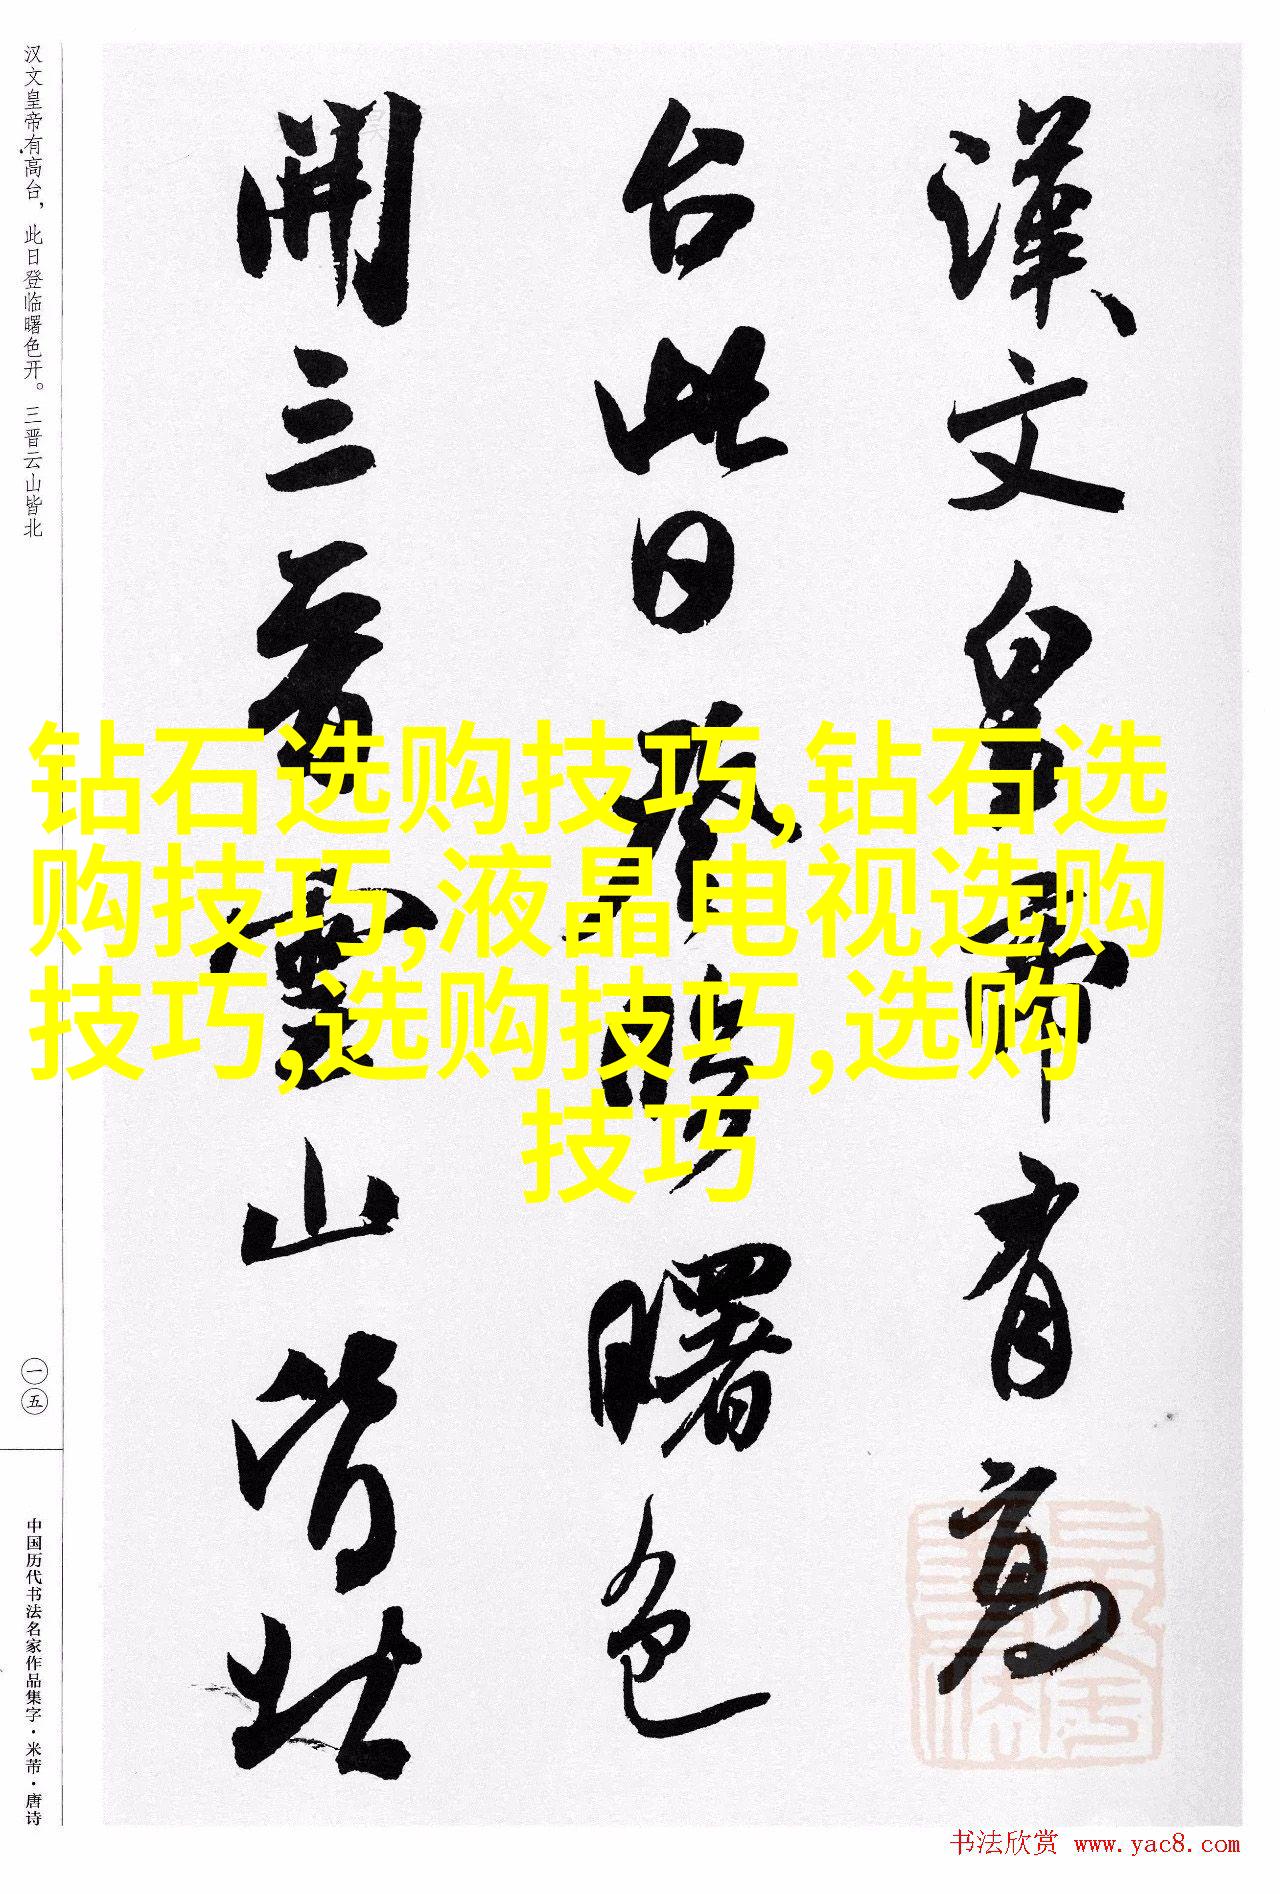 漢文皇帝有高
台此日登臨曙色
開三晉雲山皆北
汉文皇帝有高台，此日登临曙色开。三晋云山皆北
一五
中国历代书法名家作品集字·米芾·唐诗
钻石选购技巧,钻石选
购技巧,液晶电视选购
技巧,选购技巧,选购
技巧
书法欣赏 www.yac8.com